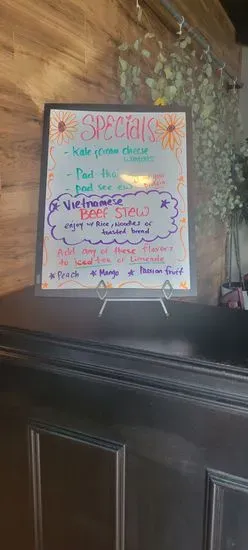 SPECIALS
- Kale & cream cheese
wontons
- Pad Thai
pad see ew
Vietnamese
BEEF STEW
enjoy w/ Rice, Noodles or
toasted bread
Add any of these flavors
to iced tea or Limeade
* Peach * Mango * Passion fruit